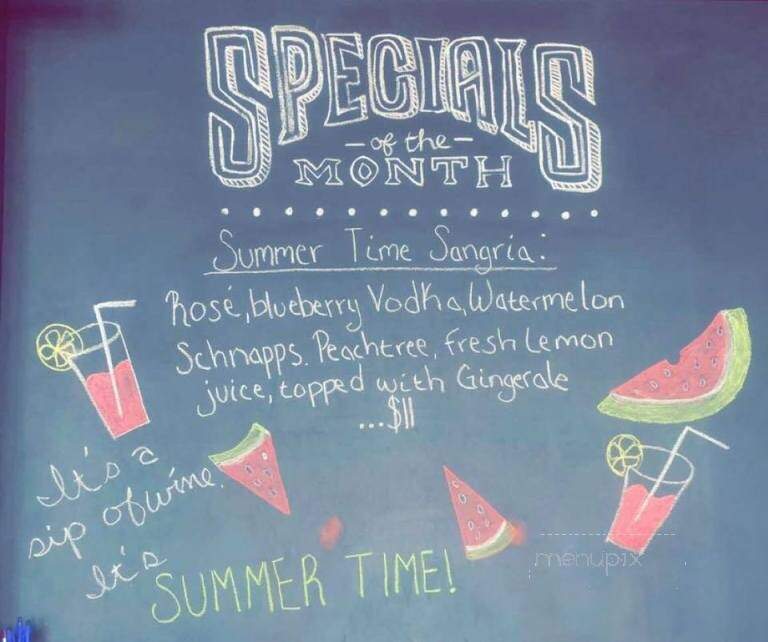 SPECIALS
-of the-
MONTH
Summer Time Sangria:
Rosé, blueberry Vodka, Watermelon
Schnapps. Peachtree, fresh Lemon
juice, topped with Gingerale
...$11
It's a
sip of wine.
It's
SUMMER TIME!
menupix